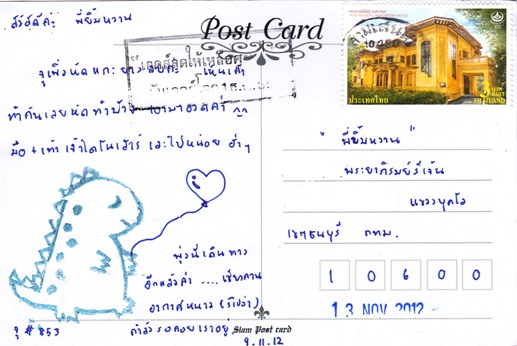 สวัสดีค่ะ พี่ยิ้มหวาน
Post Card
ทำกันเลยหัดทำบ้าง
มือ + เท้า เจ้าไดโนเสาร์ เลอะไปหน่อย ฮ่าๆ
พุ่งนี้เดินทาง
อีกแล้วค่ะ .... เชียงคาน
อากาศหนาว (รึเปล่า)
กำลังรอคอยเราอยู่
จุ # 853
Siam Post card
9.11.12
ประเทศไทย
3 บาท BAHT
THAILAND
" พี่ยิ้มหวาน "
พระยาภิรมย์รีเจ้น
แขวงบุคโล
เขตธนบุรี กทม.
1 0 6 0 0
13 NOV 2012